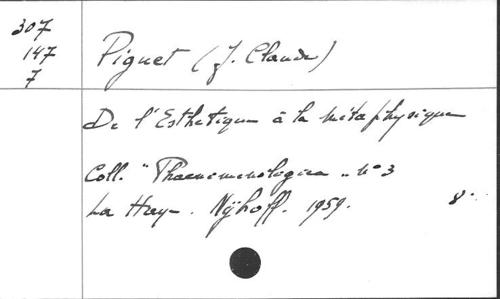 307
147
7
Piguet (J. Claude)
De l'Esthétique à la métaphysique
Coll. "Phaenomenologica" n° 3
La Haye. Nijhoff. 1959. 8°